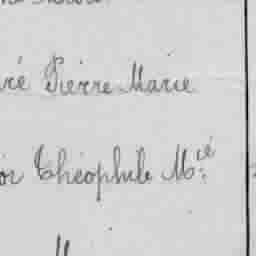 ré Pierre Marie
or Théophile M.ié